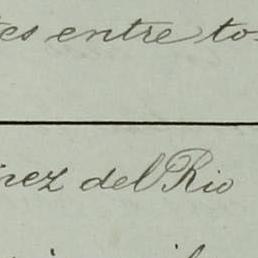 es entre to
nez del Rio